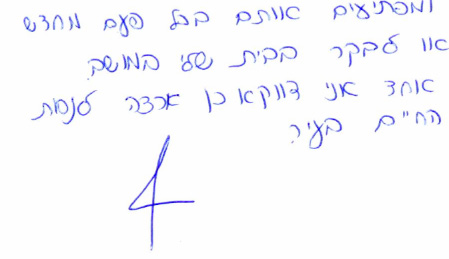 ומפתיעים אותם בכל פעם מחדש
או לבקר בבית שלי במושב.
אוחד אני דווקא כן ארצה לנסות
החיים בעיר.
4